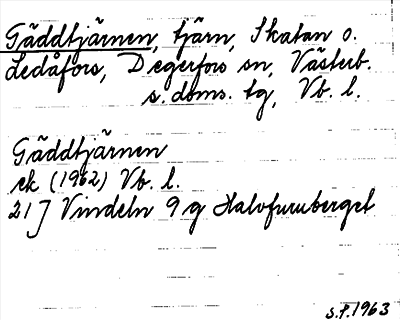 Gäddtjärnen, tjärn, Skatan o.
Ledåfors, Degerfors sn, Västerb.
s. doms. tg, Vb. l.
Gäddtjärnen
ek (1962) Vb. l.
21 J Vindeln 9 g Halvfuruberget
S.P. 1963